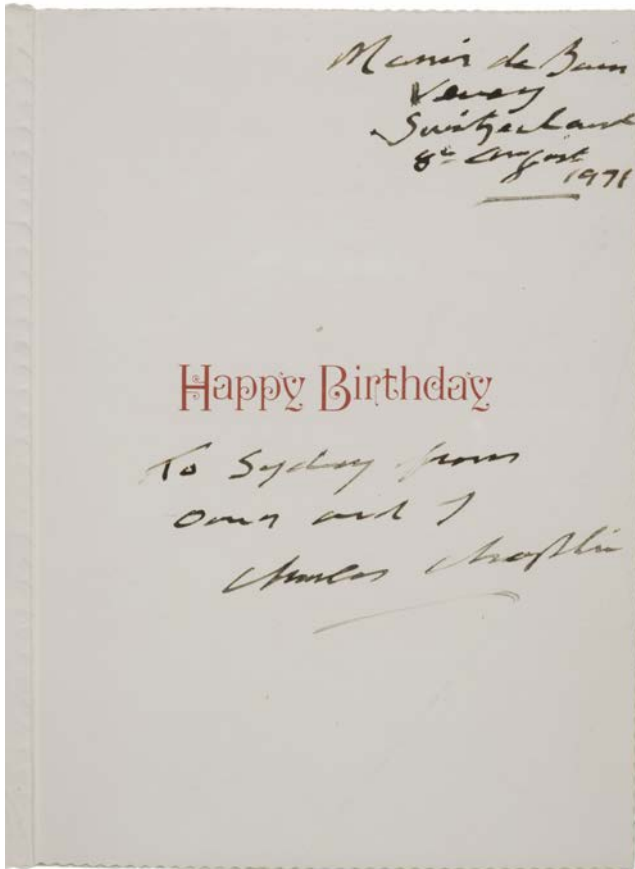 Manoir de Ban
Vevey
Switzerland
8th August
1971
Happy Birthday
To Sydney from
Oona and I
Charles Chaplin